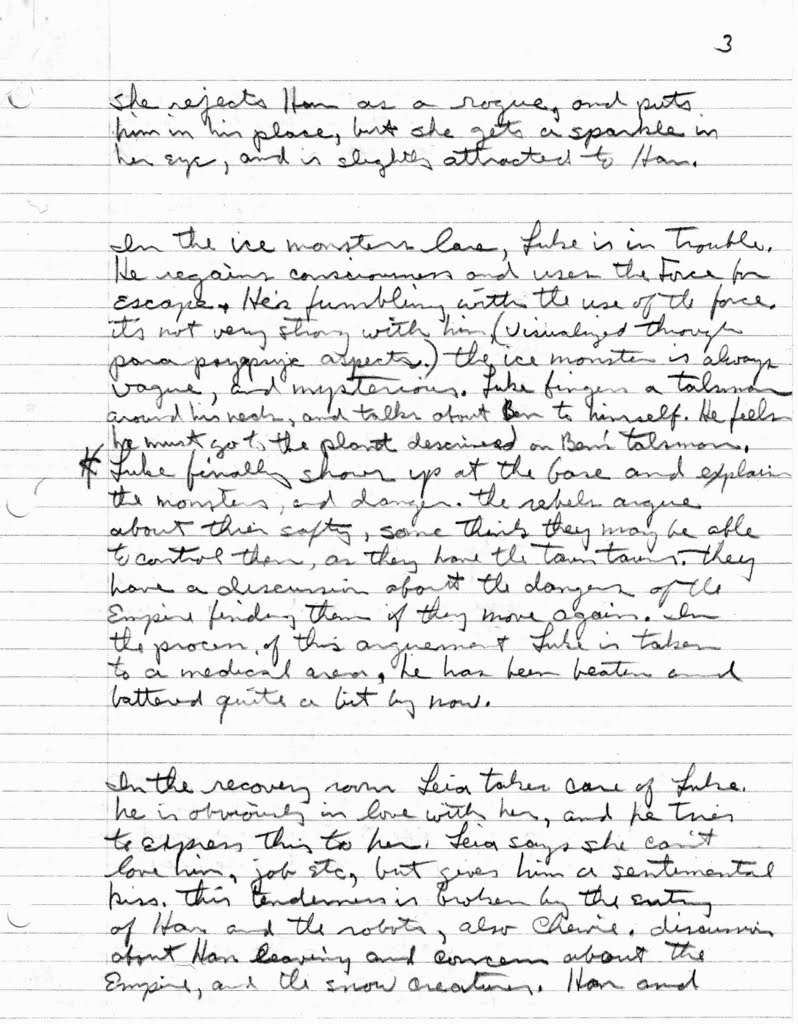 3
she rejects Han as a rogue, and puts
him in his place, but she gets a sparkle in
her eye, and is slightly attracted to Han.
In the ice monsters lare, Luke is in trouble.
He regains consciousness and uses the Force for
escape. He's fumbling with the use of the force.
its not very strong with him, (visualized through
para aspects.) the ice monster is always
vague, and mysterious. Luke fingers a talsman
around his neck, and talks about Ben to himself. He feels
he must go to the planet descrived on Ben's talsman.
Luke finally shows up at the base and explains
the monsters, and danger. the rebels argue
about their safty, some think they may be able
to control them, as they have the taun tauns. they
have a discussion about the dangers of the
Empire finding them if they move again. In
the process of this arguement Luke is taken
to a medical area, he has been beaten and
battered quite a bit by now.
In the recovery room Leia takes care of Luke.
he is obviously in love with her, and he tries
to express this to her. Leia says she can't
love him, job etc, but gives him a sentimental
kiss. this tenderness is broken by the entry
of Han and the robots, also Chewie. discussion
about Han leaving and concern about the
Empire, and the snow creatures. Han and